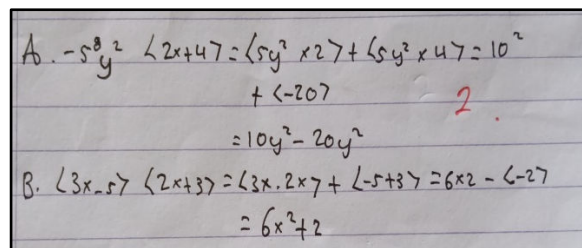 A. -5⁸y² <2x+4> = <5y² × 2> + <5y² × 4> = 10²
+ <-20>
2.
= 10y² - 20y²
B. <3x-5> <2x+3> = <3x . 2x> + <-5+3> = 6x2 - <-2>
= 6x² + 2